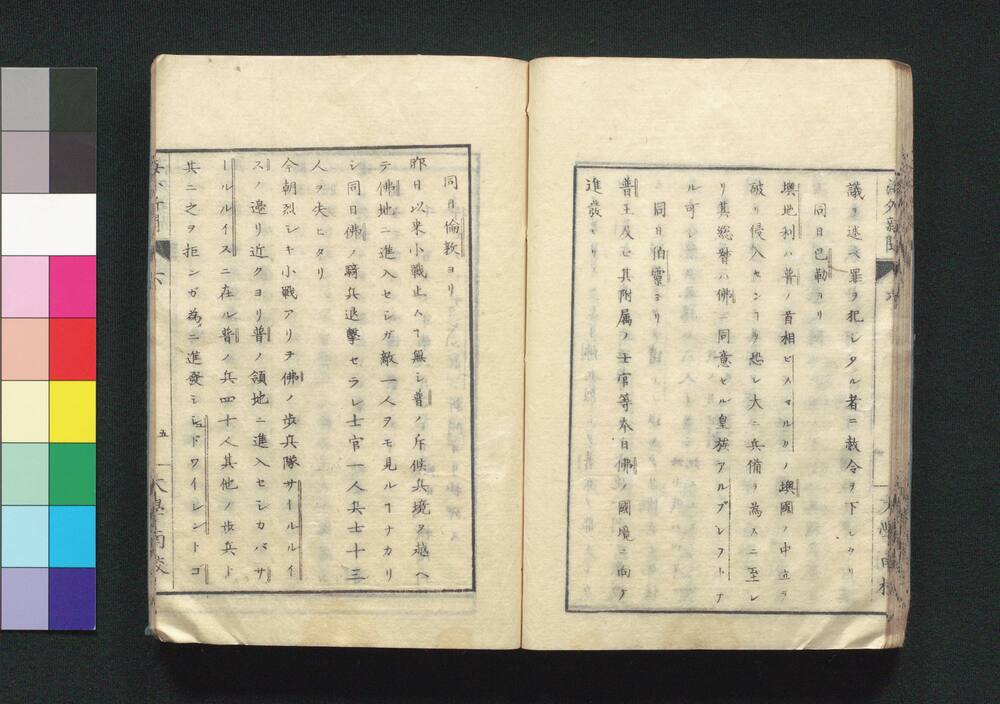 議ヲ述ベ罪ヲ犯シタル者ニ赦令ヲ下シタリ
同日巴勒ヨリ
墺地利ハ普ノ首相ビスマルクガノ墺國ノ中立ヲ
破リ侵入センヿヲ恐レ大ニ兵備ヲ為スニ至レ
リ其総督ハ佛ニ同意セル皇族アルブレフトナ
ル可シ
同日伯靈ヨリ
普王及ヒ其附属ノ士官等本日佛ノ國境ニ向ケ
進發セリ
海外新聞
大學南校
同日倫敦ヨリ
昨日以来小戰止ヿ無シ普ノ斥候兵境ヲ越ヘ
テ佛地ニ進入セシガ敵一人ヲモ見ルヿナカリ
シ同日佛ノ騎兵追擊セラレ士官一人兵士十三
人ヲ失ヒタリ
今朝烈シキ小戰アリテ佛ノ歩兵隊サールルイ
スノ邉リ近クヨリ普ノ領地ニ進入セシカバサ
ールルイスニ在ル普ノ兵四十人其他ノ歩兵ト
共ニ之ヲ拒ンガ為ニ進發シシドワイレントコ
海外新聞
六
五
大學南校